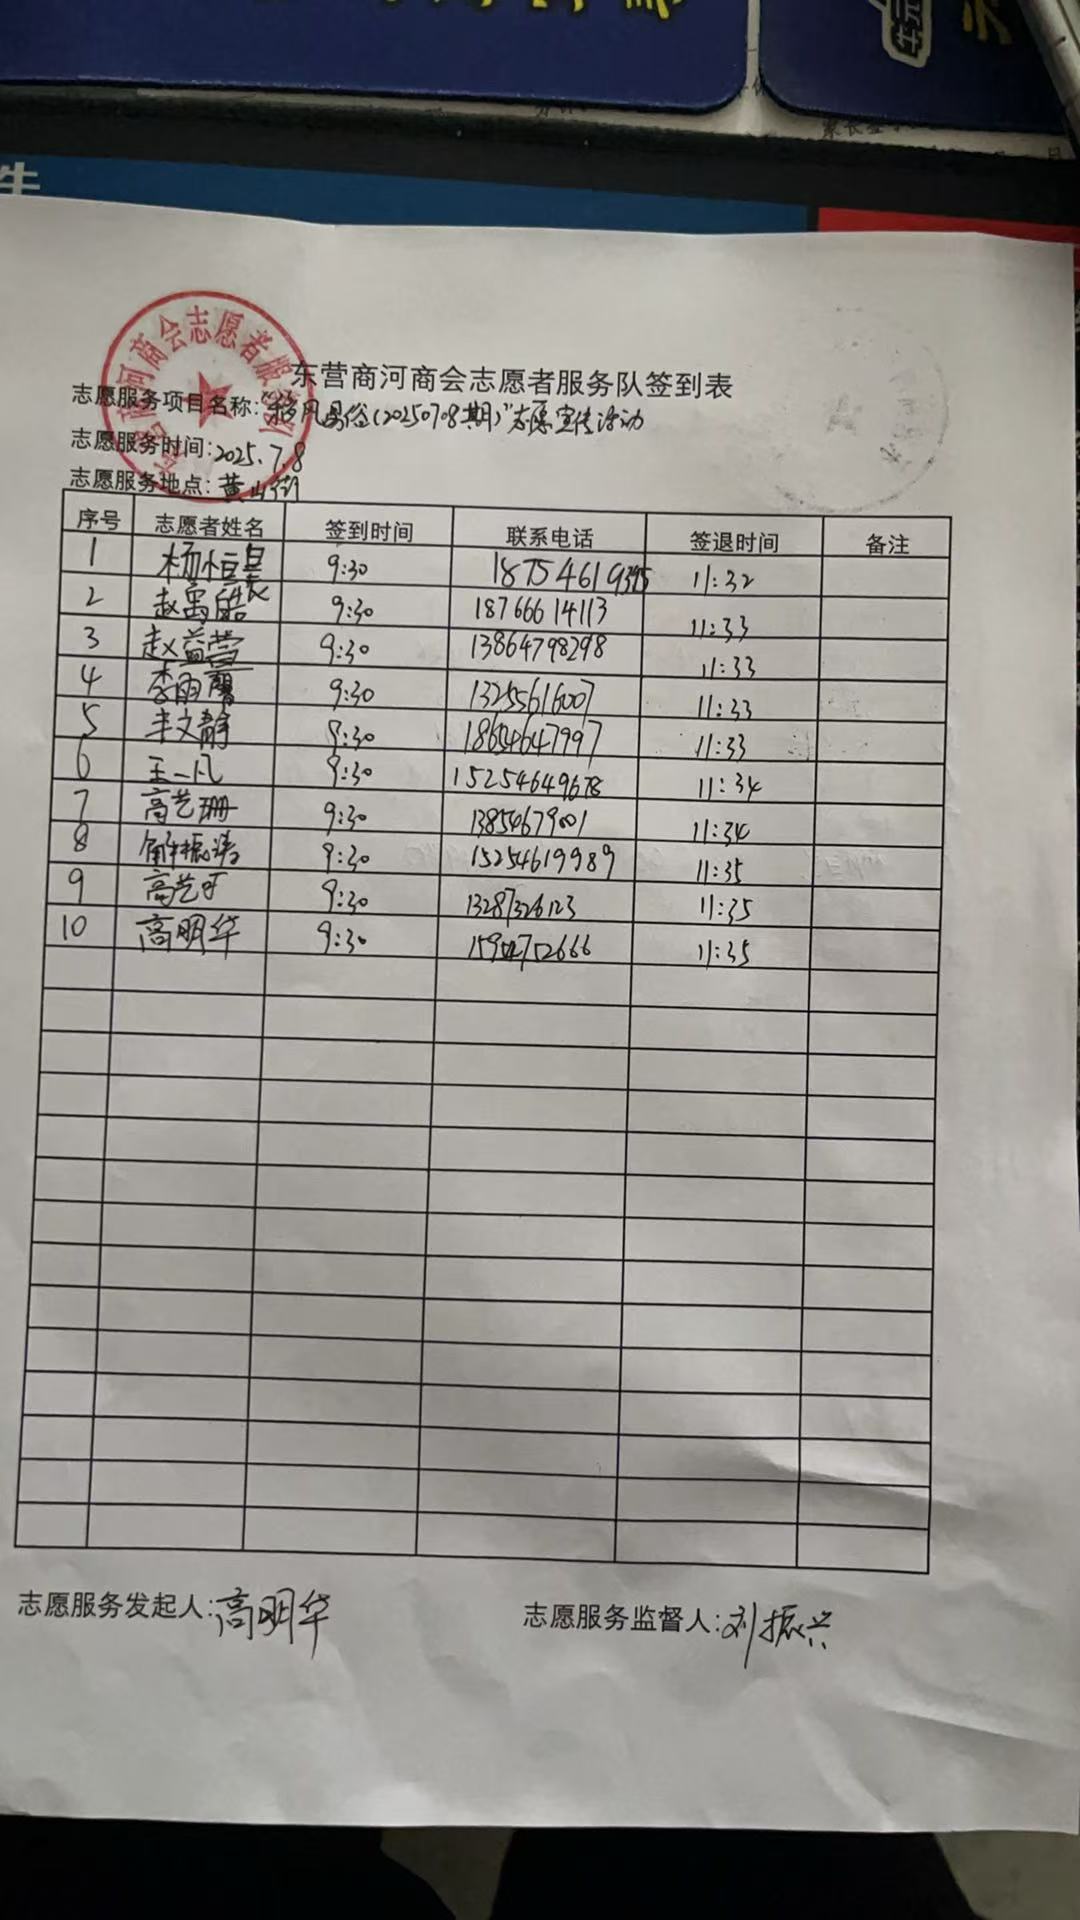 商会志愿者服
东营商河商会志愿者服务队签到表
志愿服务项目名称:"移风易俗(20250708期)"志愿宣传活动
志愿服务时间:2025.7.8
志愿服务地点:黄山街
序号 志愿者姓名 签到时间 联系电话 签退时间 备注
1 杨恒昊 9:30 18754619395 11:32
2 赵禹皓 9:30 18766614113 11:33
3 赵益营 9:30 13864798298 11:33
4 李雨馨 9:30 13255616007 11:33
5 丰文静 9:30 18654647997 11:33
6 王一凡 9:30 15254649678 11:34
7 高艺珊 9:30 13854679001 11:34
8 解振涛 9:30 15254619989 11:35
9 高艺可 9:30 13287326123 11:35
10 高明华 9:30 15954752666 11:35
志愿服务发起人:高明华 志愿服务监督人:刘振兴